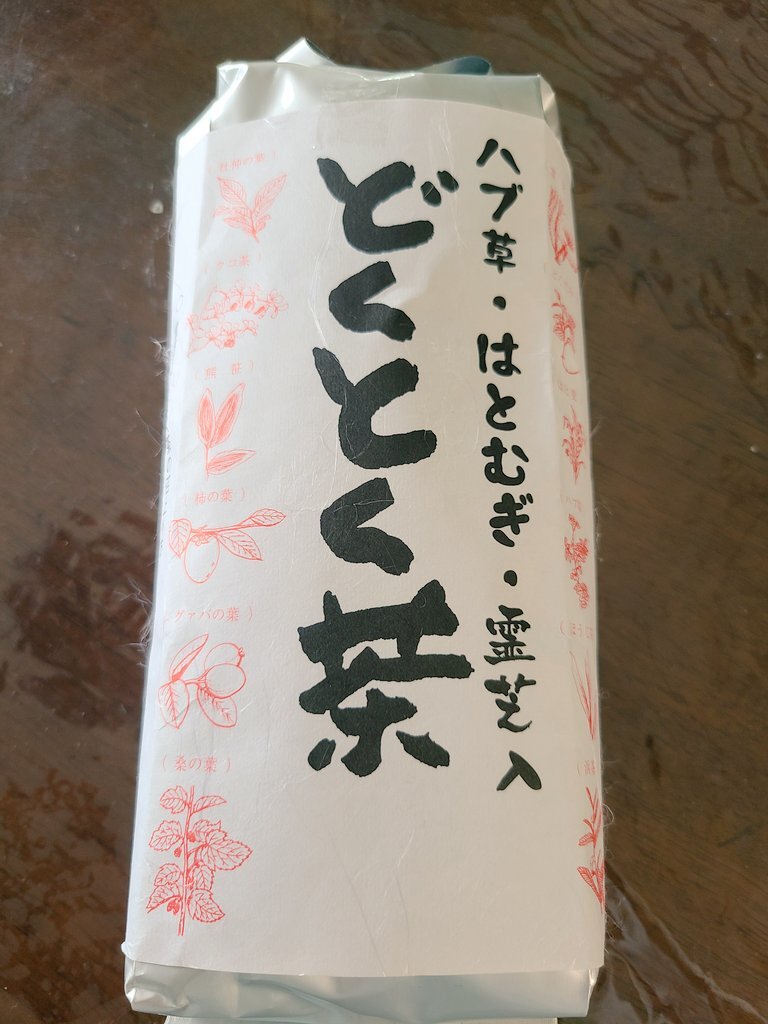 ハブ草・はとむぎ・霊芝入
どくとく茶
(杜仲の葉)
(ウコ茶)
(熊笹)
(柿の葉)
グァバの葉)
(桑の葉)